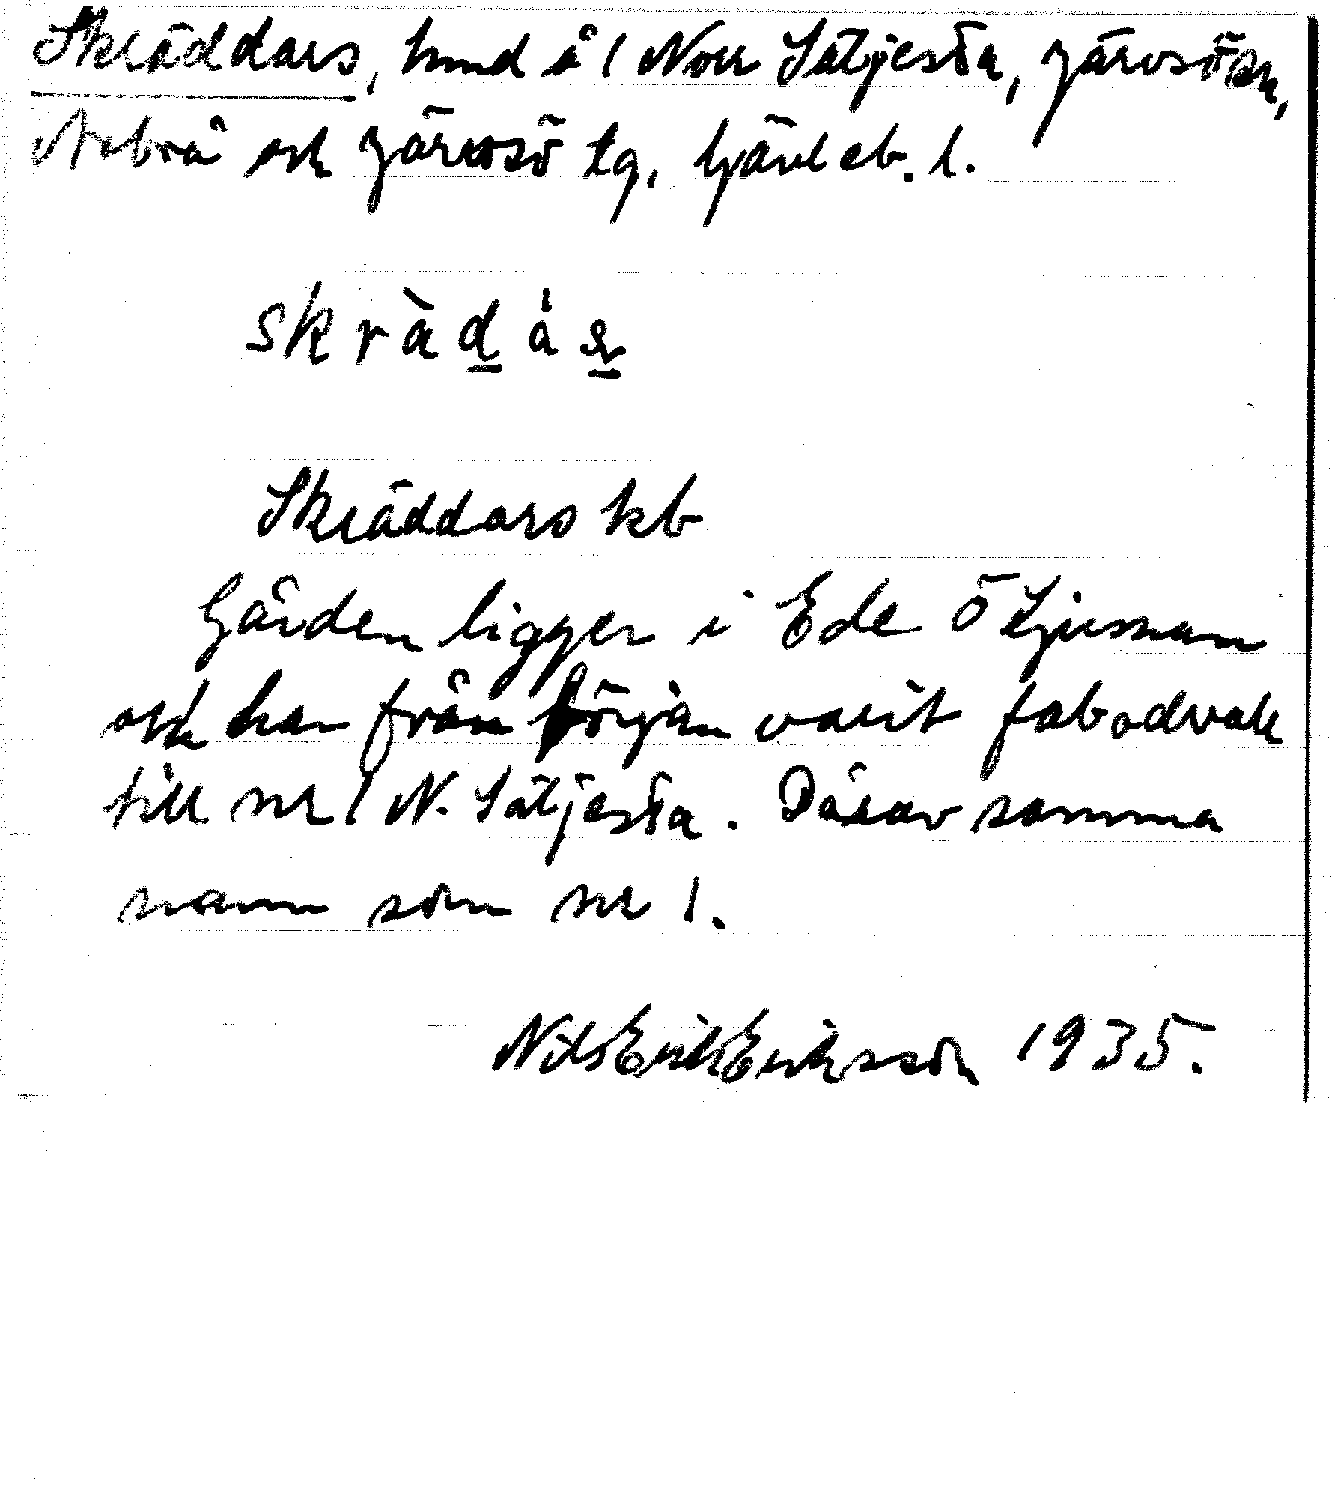 Skräddars, hmd å 1 Norr Sätjesta, Järvsö sn,
Arbrå och Järvsö tg, Gävleb. l.
skràdȧs̱
Skräddars kb
Gården ligger i Ede Ö Ljusnan
och har från början varit fabodvall
till nr 1 N. Sätjesta. Därav samma
namn som nr 1.
Nils Erik Eriksson 1935.